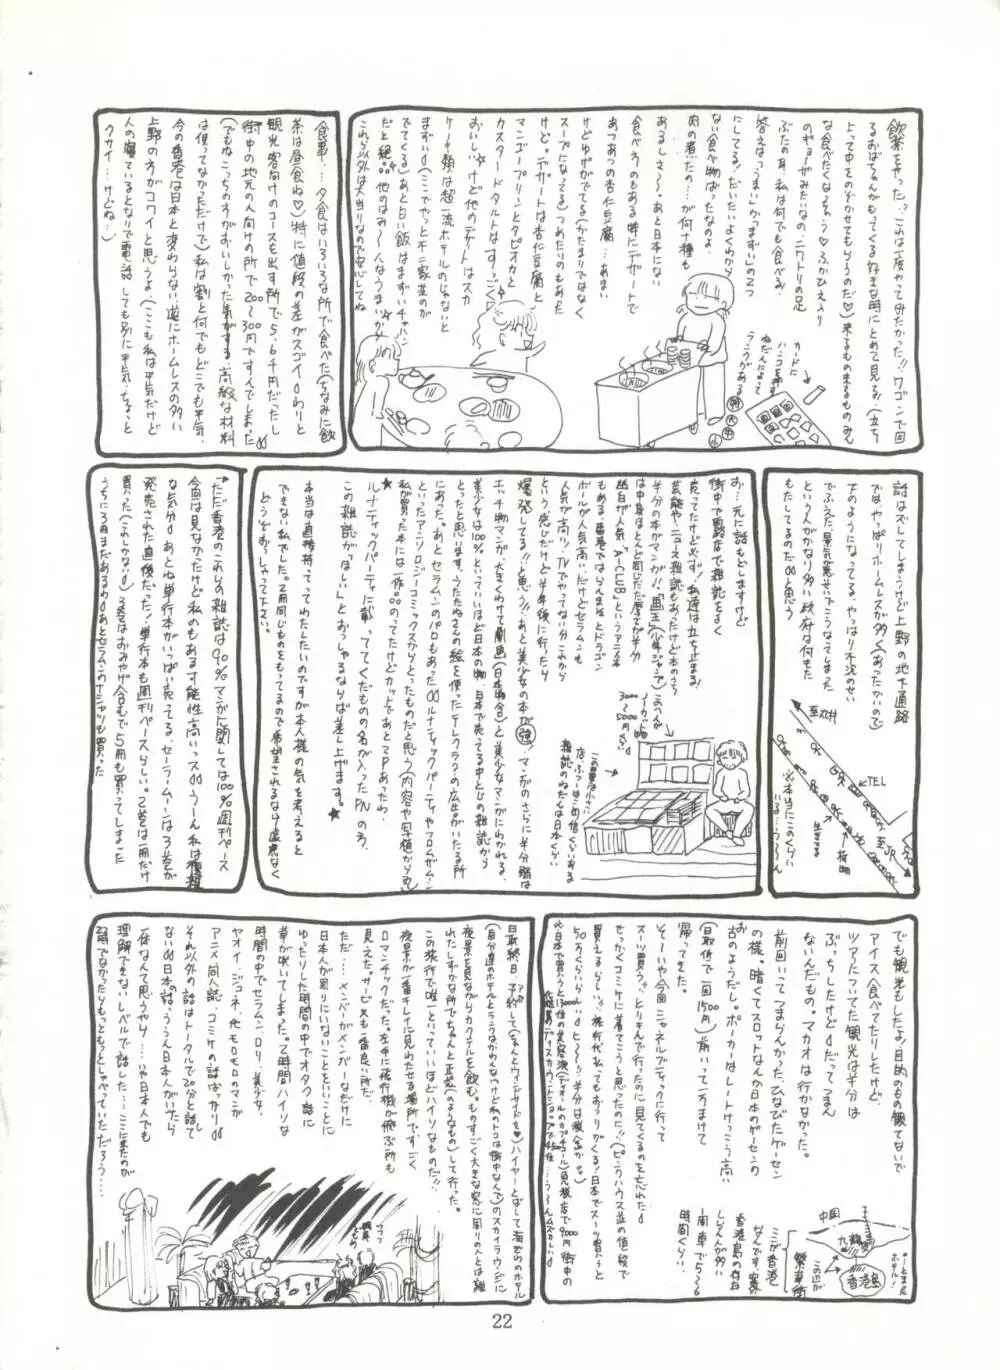 飲茶をやった!!これは一度やってみたかった!!ワゴンで回
るおばちゃんがもってくる好きな時にとめて見る。(立ち
よって中をのぞかせてもらうのだ♡)来るもの来るものみん
な食べたくなっちゃう♡ふかひれ入り
のギョーザみたいなの、ニワトリの足
ぶたの耳、私は何でも食べる!
答えは「うまい」か「まずい」の2つ
にしてる!だいたいよくわから
ない食べ物ばったなのよ
肉の煮たの…が何十種も
あるしさ〜。あと日本にない
食べものもある特にデザートで
あつあつの杏仁豆腐…あまい
けどゆげがでてる(かたまりではなく
スープになってる)つめたいのもあった
けど。デパートは杏仁豆腐と
マンゴープリンとタピオカと
カスタードタルトはすっごく
おいしいけど他のデザートはスカ
ケーキ類は超一流ホテルのじゃないと
まずい(ここでやっと不二家並のが
でてくる)あと白い飯はまずいチャハン
だと絶◦◦他のはみ〜んなうまい
これら以外は大当りなので安心してね
カードに
ハンコを押す
ねだんによって
ランクがある
特 大 中 小
食事…夕食はいろいろな所で食べた(ちなみに飲
茶は昼食ね♡)特に値段の差がスゴイ わりと
観光客向けのコースを出す所で5,6千円だったし
街中の地元の人間向けの所で200〜300円ですんでしまった
(でもねこっちの方がおいしかった気がする。高級な材料
は使ってなかっただけで)私は割と何でもどこでも平気
今の香港は日本と変わらない 道にホームレスの多い
上野の方がコワイと思うよ(ここも私は平気だけど
人の寝ているとなりで電話しても別に平気…ちょっと
クサイ…けどね…)
話はズレてしまうけど上野の地下通路
ではやっぱりホームレスが多く(あったかいので)
下のようになってる、やっぱり不況のせい
でふえた、景気悪化でこうなってしまった
という人がかなり多い 政府は何もた
もたしてるのだと思う
至丸井
TEL
至JR
荷物
生きてる
※本当にこのくらい
いる…う〜ん
お…元に話もどしますけど
街中で露店で雑誌をよく
売ってたけど必ず!私達は立ち止まる!
芸能やニュース雑誌もあったけど本のうち
半分の本がマンガ!!「画王」(少年ジャンプ)
は中身ほとんど同じだった 厚さが半分
幽白が人気「A-CLUB」というアニメ本
もある 香港ではらんま1/2とドラゴン
ボールが人気高い、だけどセラムンも
人気が高い、TVでやってない分これから
という感じだけど半年後に行ったら
爆発してる!!と思う!!あと美少女の本が強、マンガのさらに半分弱は
エッチ物マンガ、大きくわけて劇画(日本物含)と美少女マンガにわかれる。
美少女は100%といっていいほど日本の物、日本で売ってる中とじの雑誌から
とったと思います。うたたねさんの絵を使ったテレクラ?の広告がいたる所
にあった。あとセラムンのパロもあった ルナティックパーティやフロムザムーン
といったアンソロジーコミックスからとったものだと思う(内容や写植から見て)
私が買った本には一作◦◦のってたけどカットであとでPあったわ、
ルナティックパーティに載っててくだものの名が入ったPNの方、
この雑誌がほしい」とおっしゃるならば差し上げます。★
本当は直接持っててわたしたいのですが本人様の気を考えると
でもない私でした。2冊同じものをもってるので希望されるなり遠慮なく
どうぞおっしゃって下さい。
このへんが
ノーカットで
3000〜5000円ぐらい
この露店は小さい
店。ふつーはこの倍くらいある
雑誌のねだんは日本くらい
★ただ香港のこれらの雑誌は90%マンガに関しては100%週刊ペース
今回は見なかったけど私のもある可能性高いっス うーん私は複雑
な気分 あとね単行本がいっぱい売ってる、セーラームーンは3巻が
発売された直後だった!単行本も週刊ペースらしい。2巻は一冊だけ
買った(これしかない)3巻はおみやげ含むで5冊も買ってしまった
うちに3冊まだあるわ あとセラムンのTシャツも買った
でも観光もしたよ!目的のもの観てないで
アイス食べてたりしたけど、
ツアーについてた観光は半分は
ぶっちしたけど だってつまん
ないんだもの。マカオは行かなかった。
前回いってつまらなかったひなびたゲーセン
の様。暗くてスロットなんか日本のゲーセンの
お古のようだし。ポーカーはレートけっこう高い
(最低で一回1500円)前いって一万まけて
帰ってきた。
そーいや今回シャネルブティックに行って
スーツ買って
せっかくコミケに着てこうと思ったのに!!(ピンクハウス並の値段で
買えるらしい!!)トリキんで行ったのに見てくるのを忘れた
50万くらいらしい ヒ〜!!半分は税金かー 旅行代払ってもおつりがくる!日本でスーツ買うと
※日本で買うと13000くらいの美容液(ディオールのカプチュール)免税店で9000円 街中の
中国
九龍
香港島
このへんが
繁華街
ここが香港
なんです。案外
香港島の存在
しらん人が多い
一周車で5〜6
時間くらい。
最終日、予約して(ちゃんとウィンドサイドを♥)ハイヤーとばして海ぞいのホテル
(自分達のホテルとランクはかわんないけど私のトコは街中なんで)のスカイラウンジに
夜景を見ながらカクテルを飲む。ものすごく大きな窓に周りの人とは離
れたしずかな所でちゃんと正装(のようなもの)して行った。
この旅行で唯一といっていいほどハイソなものだ!!
夜景が一番キレイに見わたせる場所ですごく
ロマンチックだった。左手に飛行機が飛ぶ所も
見えた。サービスも一番良い所だ。
ただ…メンバーがメンバーなだけに
日本人が周りにいないことをいいことに
ゆったりした時間の中でオタク話に
華が咲いてしまった。2時間ハイソな
時間の中でセラムン、ロリ、美少女、
ヤオイ、ジュネ、他モロモロのマンガ
アニメ同人誌、コミケの話ばっかり
それ以外の話はトータルで20分と話して
ない 日本の話、ううん日本人がいたら
一体なんて思うやら…いや日本人でも
理解できないレベルで話した……ここに来たのが
2時でなかったらもっともっとしゃべっていただろう…
22